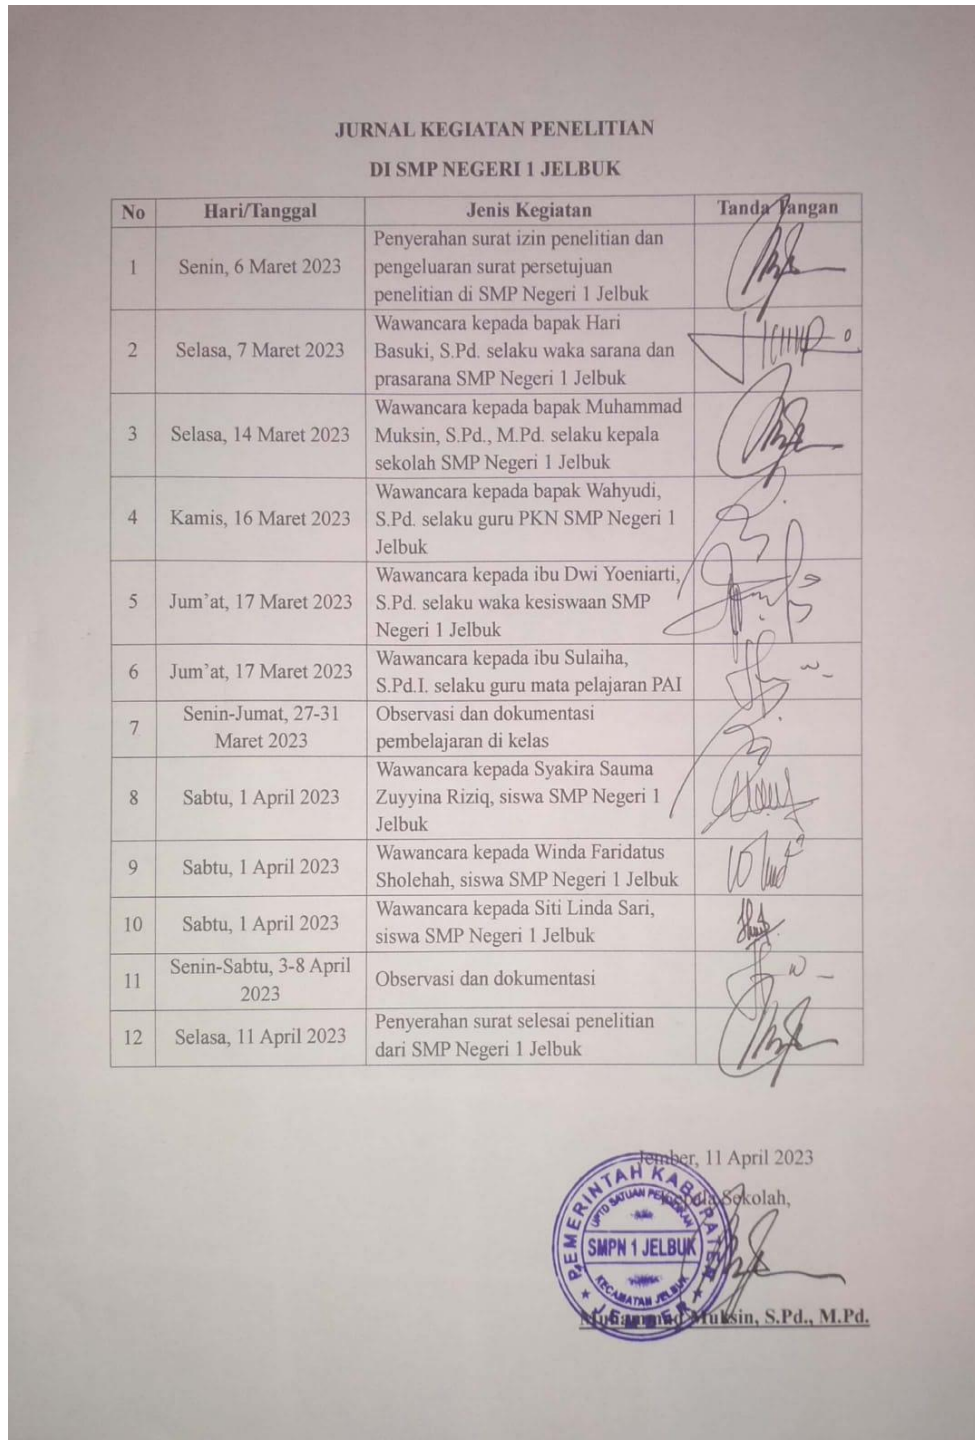 JURNAL KEGIATAN PENELITIAN
DI SMP NEGERI 1 JELBUK
No Hari/Tanggal Jenis Kegiatan Tanda Tangan
1 Senin, 6 Maret 2023 Penyerahan surat izin penelitian dan
pengeluaran surat persetujuan
penelitian di SMP Negeri 1 Jelbuk
2 Selasa, 7 Maret 2023 Wawancara kepada bapak Hari
Basuki, S.Pd. selaku waka sarana dan
prasarana SMP Negeri 1 Jelbuk
3 Selasa, 14 Maret 2023 Wawancara kepada bapak Muhammad
Muksin, S.Pd., M.Pd. selaku kepala
sekolah SMP Negeri 1 Jelbuk
4 Kamis, 16 Maret 2023 Wawancara kepada bapak Wahyudi,
S.Pd. selaku guru PKN SMP Negeri 1
Jelbuk
5 Jum’at, 17 Maret 2023 Wawancara kepada ibu Dwi Yoeniarti,
S.Pd. selaku waka kesiswaan SMP
Negeri 1 Jelbuk
6 Jum’at, 17 Maret 2023 Wawancara kepada ibu Sulaiha,
S.Pd.I. selaku guru mata pelajaran PAI
7 Senin-Jumat, 27-31
Maret 2023 Observasi dan dokumentasi
pembelajaran di kelas
8 Sabtu, 1 April 2023 Wawancara kepada Syakira Sauma
Zuyyina Riziq, siswa SMP Negeri 1
Jelbuk
9 Sabtu, 1 April 2023 Wawancara kepada Winda Faridatus
Sholehah, siswa SMP Negeri 1 Jelbuk
10 Sabtu, 1 April 2023 Wawancara kepada Siti Linda Sari,
siswa SMP Negeri 1 Jelbuk
11 Senin-Sabtu, 3-8 April
2023 Observasi dan dokumentasi
12 Selasa, 11 April 2023 Penyerahan surat selesai penelitian
dari SMP Negeri 1 Jelbuk
Jember, 11 April 2023
Kepala Sekolah,
PEMERINTAH KABUPATEN
UPTD SATUAN PENDIDIKAN
SMPN 1 JELBUK
KECAMATAN JELBUK
JEMBER
Muhammad Muksin, S.Pd., M.Pd.